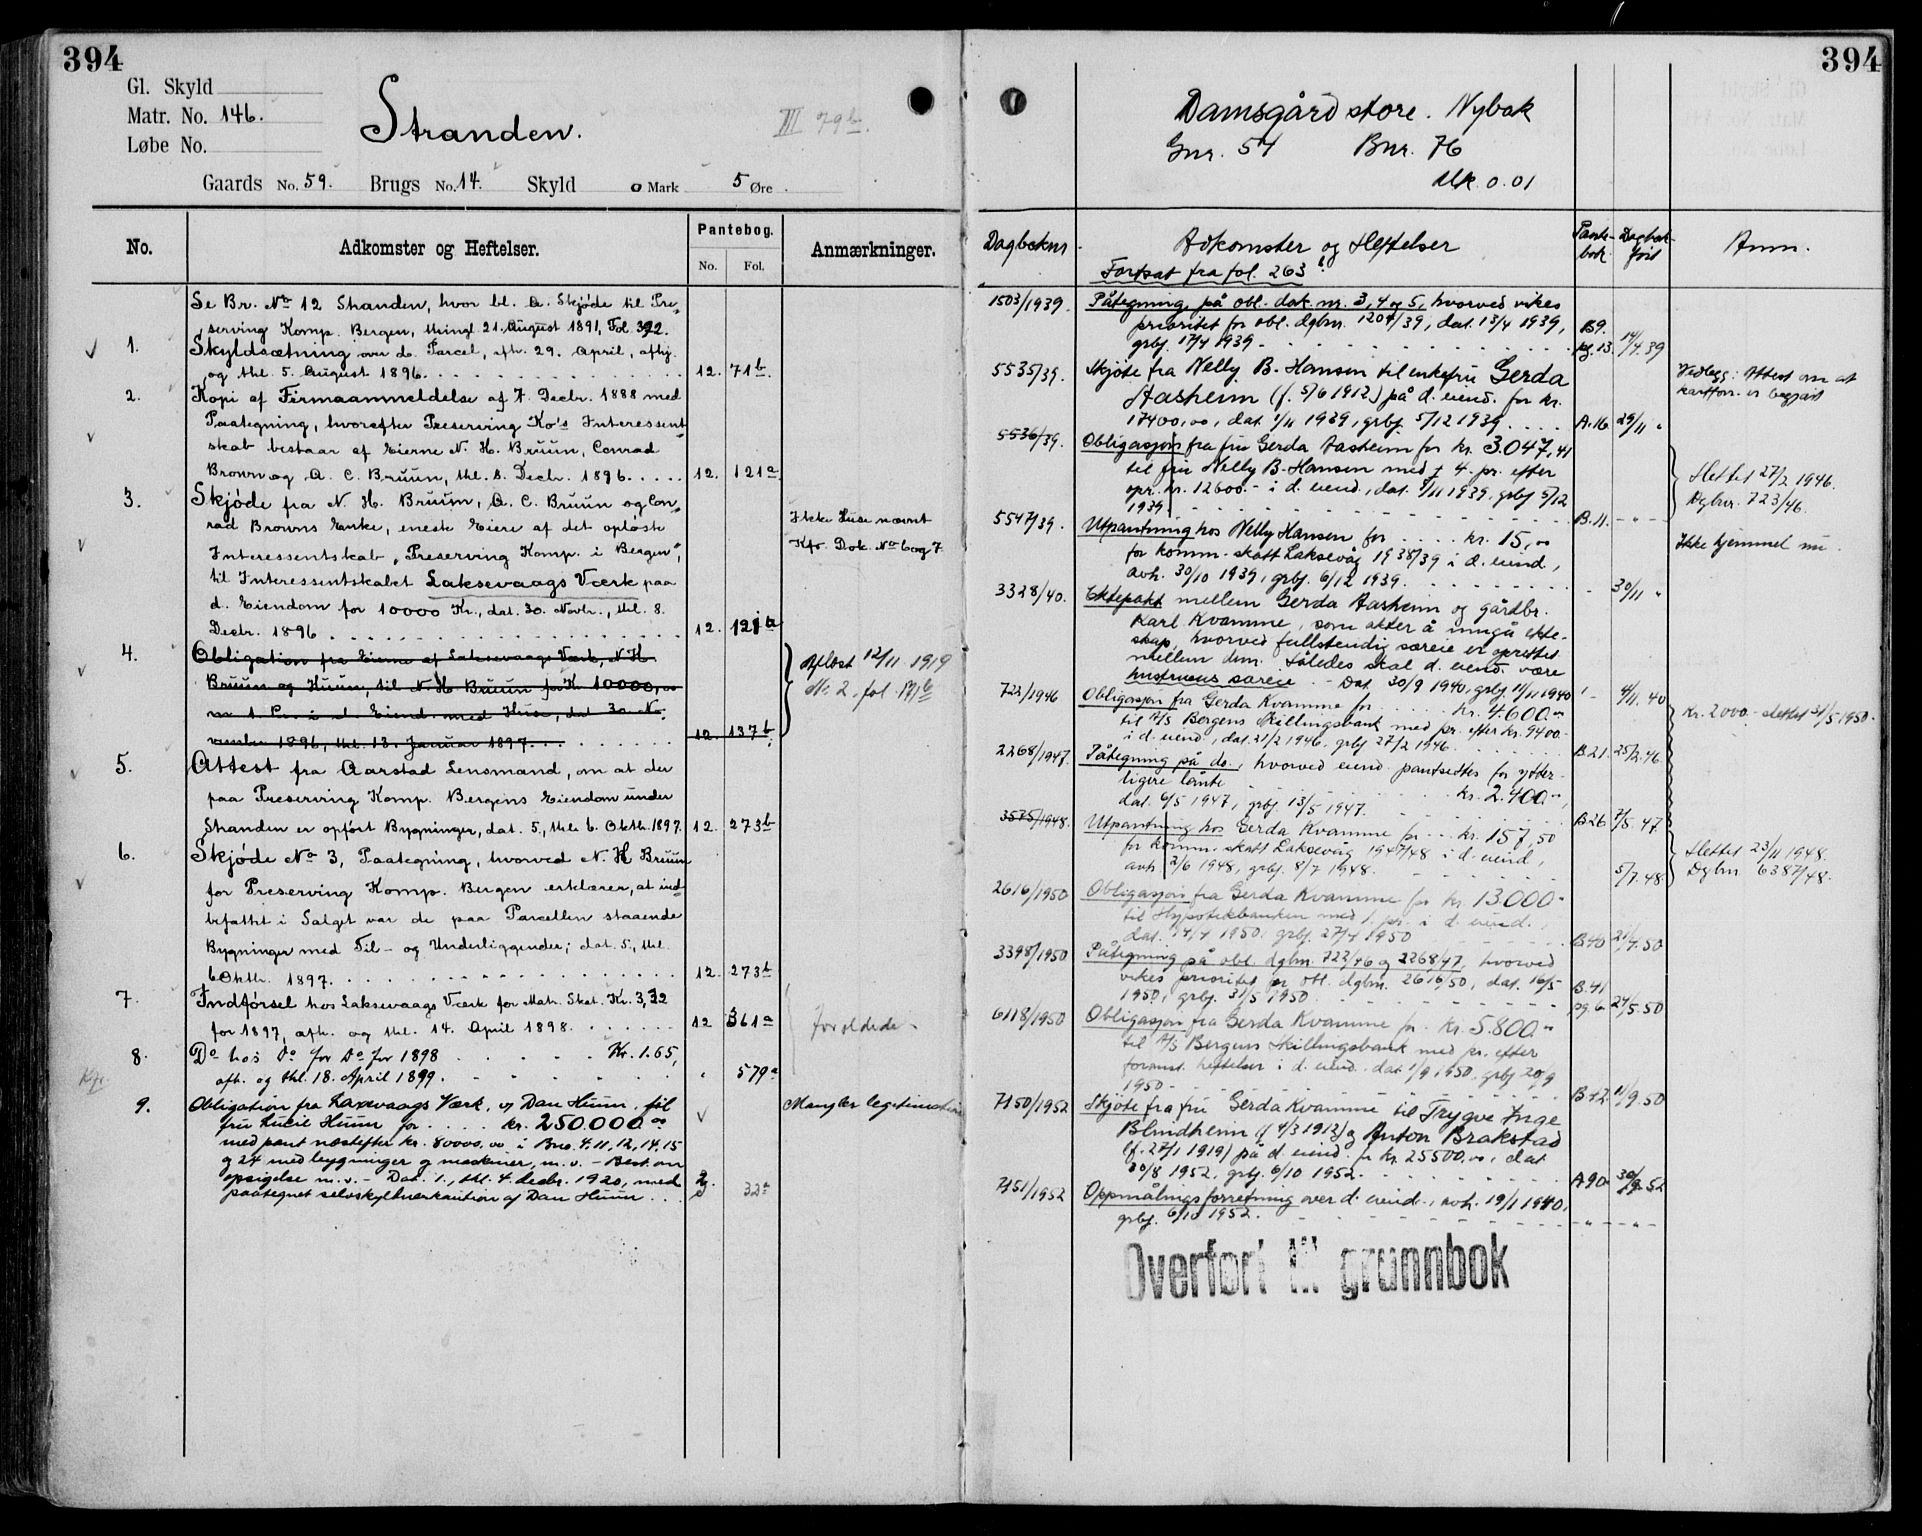 394
Gl. Skyld
Matr. No. 146.
Løbe No.
Stranden.
III 79b.
Gaards No. 59. Brugs No. 14. Skyld 0 Mark 5 Øre
No.
Adkomster og Heftelser.
Pantebog.
No. Fol.
Anmærkninger.
Se Br. No 12 Stranden, hvor bl. a. Skjøde til Pre-
serving Komp. Bergen, thingl. 21. August 1891, Fol. 392.
1. Skyldsætning over d. Parcel, afh. 29. April, afhj.
og thl. 5. August 1896. 12. 71b.
2. Kopi af Firmaanmeldelse af 7. Decbr. 1888 med
Paategning, hvorefter Preserving Ko's Interessent-
skab bestaar af Eierne N. H. Bruun, Conrad
Brown og A. C. Bruun, thl. 8. Decbr. 1896. 12. 121a
3. Skjøde fra N. H. Bruun, A. C. Bruun og Con-
rad Browns Enke, eneste Eiere af det opløste
Interessentskab „Preserving Komp. i Bergen",
til Interessentskabet Laksevaags Værk paa
d. Eiendom for 10000 Kr., dat. 30. Novbr., thl. 8.
Decbr. 1896 12. 121a
Ikke Huse nævnt
Kfr. Dok. No 6 og 7
4. Obligation fra Eierne af Laksevaags Værk, N. H.
Bruun og Huun, til N. H. Bruun for Kr. 10000,00
m. 1. Pr. i d. Eiend. med Huse, dat. 30. No-
vember 1896, thl. 13. Januar 1897. 12. 137b.
Aflæst 12/11 1919
5. Attest fra Aarstad Lensmand, om at der
paa Preserving Komp. Bergens Eiendom under
Stranden er opført Bygninger, dat. 5., thl. 6. Oktbr. 1897. 12. 273b
6. Skjøde No 3, Paategning, hvorved N. H. Bruun
for Preserving Komp. Bergen erklærer, at ind-
befattet i Salget var de paa Parcellen staaende
Bygninger med Til- og Underliggender; dat. 5., thl.
6 Oktbr. 1897. 12. 273b
7. Indførsel hos Laksevaags Værk for Matr. Skat. Kr. 3,32
for 1897, afh. og thl. 14. April 1898. 12 361a
foreldede
8. Do hos do for do for 1898 Kr. 1.65,
afh. og thl. 18. April 1899. " 579a
Kfr.
9. Obligation fra Laxevaags Værk, v/ Dan Huun, til
fru Lucie Huun for kr. 250.000.00
med pant næstefter kr. 80000,00 i Bno. 4, 11, 12, 14, 15
og 24 med bygninger og maskiner, m.v. - Best. om
opsigelse m.v. - Dat. 1., thl. 4. decbr. 1920, med
paategnet selvskyldnerkaution af Dan Huun 32a
Mangler legitimation
394
Damsgård store. Nybak
Gnr. 54 Bnr. 76
Mk. 0.01
Dagboknr. Adkomster og Heftelser Pante-bok Dagbok-ført Anm.
Fortsat fra fol. 263b.
1503/1939. Påtegning på obl. dok. nr. 3, 4 og 5, hvorved vikes
prioritet for obl. dgbnr. 1204/39, dat. 13/4 1939,
grbj. 17/4 1939 B9. pg. 13. 14/4.39
5535/39. Skjøte fra Nelly B. Hansen til enkefru Gerda
Aasheim (f. 5/6 1912) på d. eiend. for kr.
17400,00, dat. 1/11 1939, grbj. 5/12 1939 A.16 29/11 "
Vedlegg: Attest om at
kartforr. er begjært
5536/39. Obligasjon fra fru Gerda Aasheim for kr. 3.047,41
til fru Nelly B. Hansen med 4. pr. efter
opr. kr. 12600.- i d. eiend., dat. 1/11 1939, grbj. 5/12
1939 B.11. - " -
Slettet 27/2 1946.
Dgbnr. 723/46.
5547/39. Utpantning hos Nelly Hansen for kr. 15,00
for komm. skatt Laksevåg 1938/39 i d. eiend,
avh. 30/10 1939, grbj. 6/12 1939. - 30/11 "
Ikke hjemmel nu.
3328/40. Ektepakt mellem Gerda Aasheim og gårdbr.
Karl Kvamme, som akter å inngå ekte-
skap, hvorved fullstendig særeie er oprettet
mellem dem. Således skal d. eiend. være
hustruens særeie. - Dat. 30/9 1940, grbj. 11/11 1940 4/11.40
722/1946 Obligasjon fra Gerda Kvamme for kr. 4.600.00
til A/S Bergens Skillingsbank med pr. efter kr. 9400.-
i d. eiend., dat. 21/2 1946, grbj. 27/2 1946. B.21. 25/2.46.
Kr. 2000.- slettet 31/5 1950.
2268/1947. Påtegning på do., hvorved eiend. pantsettes for ytter-
ligere lånte kr. 2.400.00,
dat. 6/5 1947, grbj. 13/5 1947. B26 7/5.47.
3575/1948. Utpantning hos Gerda Kvamme for kr. 157,50
for komm. skatt Laksevåg 1947/48 i d. eiend,
avh. 2/6 1948, grbj. 8/7 1948. 5/7.48
Slettet 23/11 1948.
Dgbnr 6387/48.
2616/1950 Obligasjon fra Gerda Kvamme for kr. 13.000.-
til Hypotekbanken med 1. pr. i d. eiend.,
dat. 14/4 1950, grbj. 27/4 1950 B40 21/4.50
3398/1950 Påtegning på obl. dgbnr. 722/46 og 2268/47, hvorved
vikes prioritet for obl. dgbnr. 2616/50, dat. 16/5
1950, grbj. 31/5 1950. B.41 pg. 6 24/5.50
6118/1950 Obligasjon fra Gerda Kvamme for kr. 5.800.00
til A/S Bergens Skillingsbank med pr. efter
foranst. heftelser i d. eiend. dat. 1/9 1950, grbj 20/9
1950 B42 11/9.50
7150/1952 Skjøte fra fru Gerda Kvamme til Trygve Inge
Blindheim (f. 4/3 1912) og Anton Brakstad
(f. 27/1 1919) på d. eiend. for kr. 25500,00, dat.
20/8 1952, grbj. 6/10 1952. A90 30/9.52
7151/1952 Oppmålingsforretning over d. eiend., avh. 19/1 1940,
grbj. 6/10 1952. - " - - " -
Overført til grunnbok